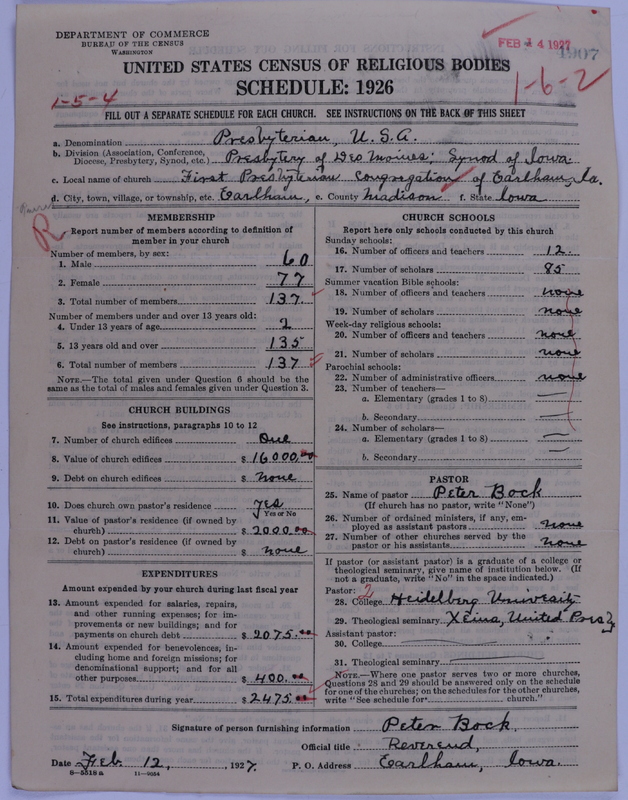 DEPARTMENT OF COMMERCE
BUREAU OF THE CENSUS
WASHINGTON
FEB 14 1927
1907
UNITED STATES CENSUS OF RELIGIOUS BODIES
SCHEDULE: 1926
1-5-4
1-6-2
FILL OUT A SEPARATE SCHEDULE FOR EACH CHURCH. SEE INSTRUCTIONS ON THE BACK OF THIS SHEET
a. Denomination Presbyterian, U.S.A.
b. Division (Association, Conference, Diocese, Presbytery, Synod, etc.) Presbytery of Des Moines; Synod of Iowa.
c. Local name of church First Presbyterian Congregation of Earlham, Ia.
d. City, town, village, or township, etc. Earlham, e. County Madison f. State Iowa
R
MEMBERSHIP
Report number of members according to definition of
member in your church
Number of members, by sex:
1. Male 60
2. Female 77
3. Total number of members 137
Number of members under and over 13 years old:
4. Under 13 years of age 2
5. 13 years old and over 135
6. Total number of members 137
NOTE.—The total given under Question 6 should be the
same as the total of males and females given under Question 3.
CHURCH BUILDINGS
See instructions, paragraphs 10 to 12
7. Number of church edifices One
8. Value of church edifices $ 16000.00
9. Debt on church edifices $ none
10. Does church own pastor's residence yes
Yes or No
11. Value of pastor's residence (if owned by
church) $ 2000.00
12. Debt on pastor's residence (if owned by
church) $ none
EXPENDITURES
Amount expended by your church during last fiscal year
13. Amount expended for salaries, repairs,
and other running expenses; for im-
provements or new buildings; and for
payments on church debt $ 2075.00
14. Amount expended for benevolences, in-
cluding home and foreign missions; for
denominational support; and for all
other purposes $ 400.00
15. Total expenditures during year $ 2475.00
CHURCH SCHOOLS
Report here only schools conducted by this church
Sunday schools:
16. Number of officers and teachers 12.
17. Number of scholars 85
Summer vacation Bible schools:
18. Number of officers and teachers none
19. Number of scholars none
Week-day religious schools:
20. Number of officers and teachers none
21. Number of scholars none
Parochial schools:
22. Number of administrative officers none
23. Number of teachers—
a. Elementary (grades 1 to 8) —
b. Secondary —
24. Number of scholars—
a. Elementary (grades 1 to 8) —
b. Secondary —
PASTOR
25. Name of pastor Peter Bock
(If church has no pastor, write "None")
26. Number of ordained ministers, if any, em-
ployed as assistant pastors none
27. Number of other churches served by the
pastor or his assistants none
If pastor (or assistant pastor) is a graduate of a college or
theological seminary, give name of institution below. (If
not a graduate, write "No" in the space indicated.)
Pastor: 2
28. College Heidelberg University
29. Theological seminary Xenia, United Pres
Assistant pastor:
30. College
31. Theological seminary
NOTE.—Where one pastor serves two or more churches,
Questions 28 and 29 should be answered only on the schedule
for one of the churches; on the schedules for the other churches,
write "See schedule for church."
Signature of person furnishing information Peter Bock,
Official title Reverend,
Date Feb. 12, 1927. P. O. Address Earlham, Iowa.
8-5518 a 11-9054